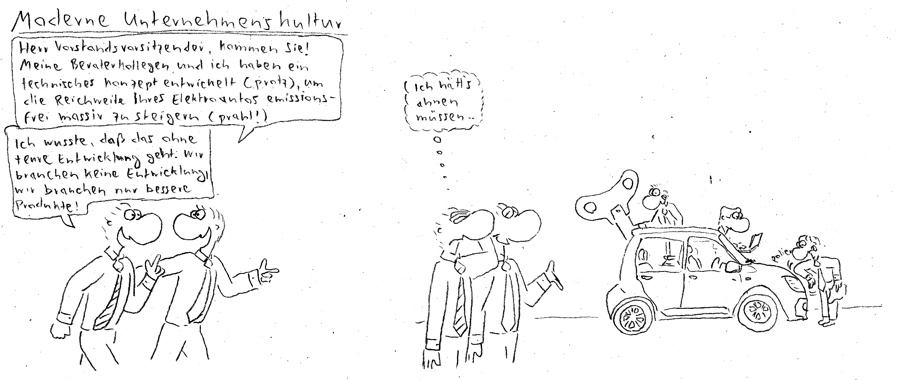 Moderne Unternehmenskultur
Herr Vorstandsvorsitzender, kommen Sie!
Meine Beraterkollegen und ich haben ein
technisches Konzept entwickelt (protz), um
die Reichweite Ihres Elektroautos emissions-
frei massiv zu steigern (prahl!)
Ich wusste, daß das ohne
teure Entwicklung geht. Wir
brauchen keine Entwicklung,
wir brauchen nur bessere
Produkte!
Ich hätt's
ahnen
müssen..